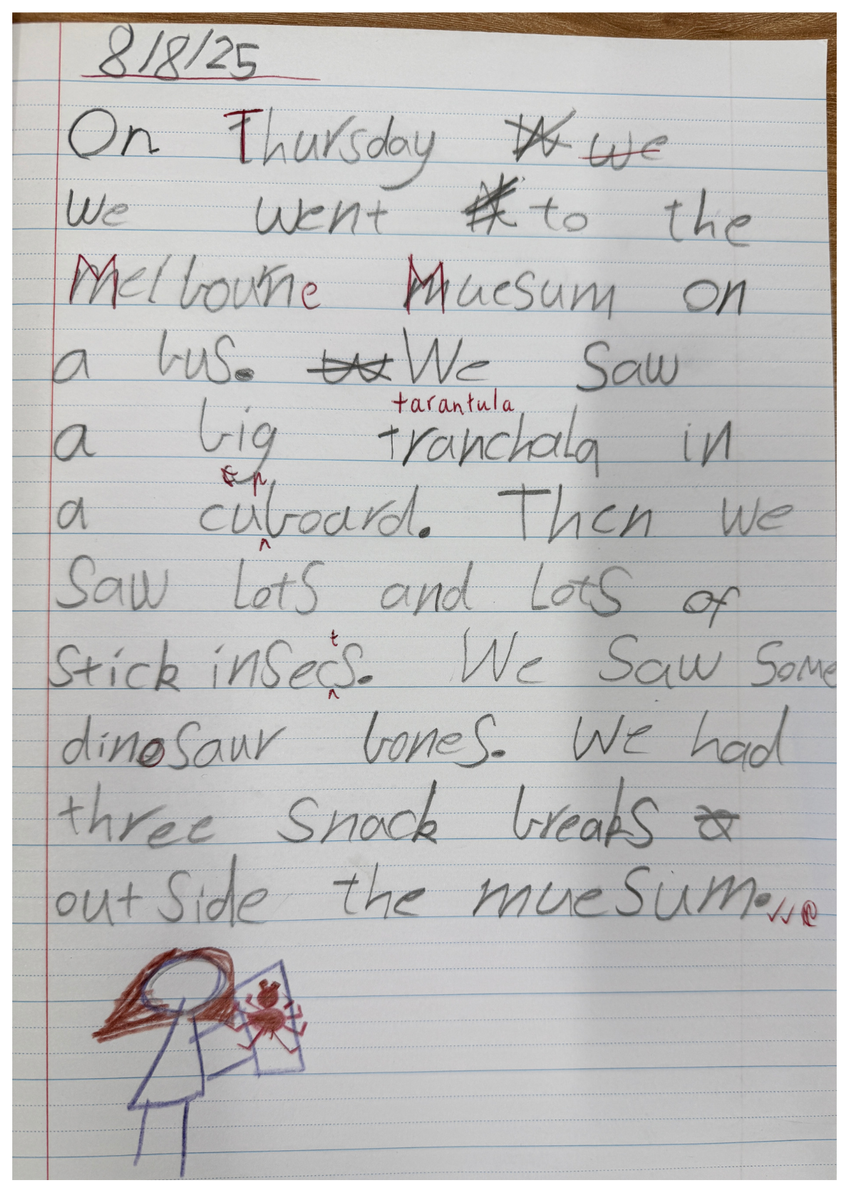 8/8/25
On Thursday we
we went to the
Melbourne Muesum on
a bus. We saw
tarantula
a big tranchala in
p
a cuboard. Then we
saw lots and lots of
t
stick insecs. We saw some
dinosaur bones. We had
three snack breaks
outside the muesum.